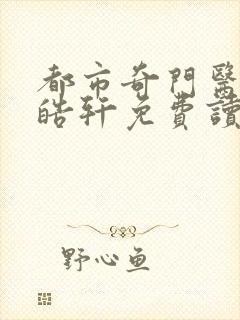 都市奇門醫
皓軒免費讀
野心鱼